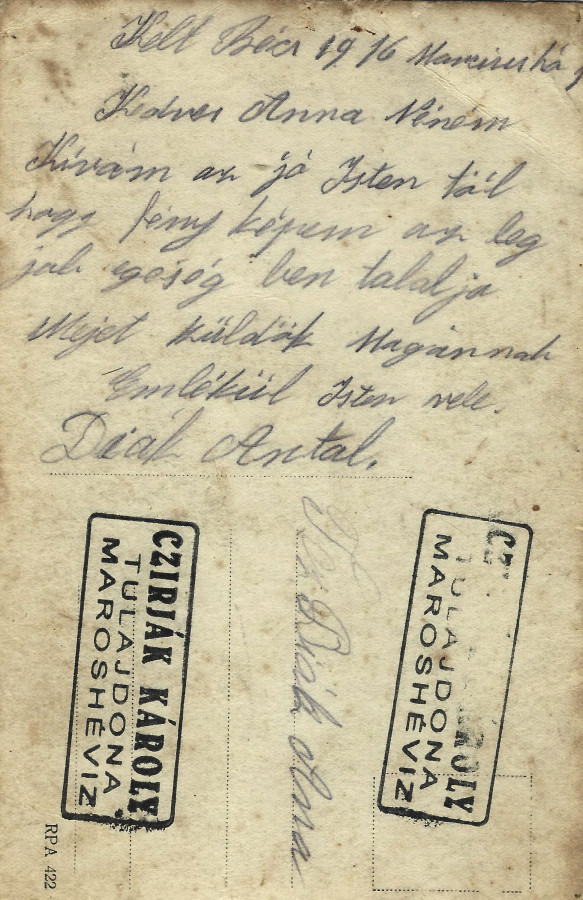 Kelt Bécs 1916 Marciushó
Kedves Anna Néném
Kívánm az jó Isten től
hogy fény képem az leg
job egeség ben talalja
Mejet küldök Magánnak
Emlékül Isten vele.
Deák Antal.
CZIRJÁK KÁROLY
TULAJDONA
MAROSHÉVIZ
Deák Anna
CZ ROLY
TULAJDONA
MAROSHÉVIZ
RPA 422